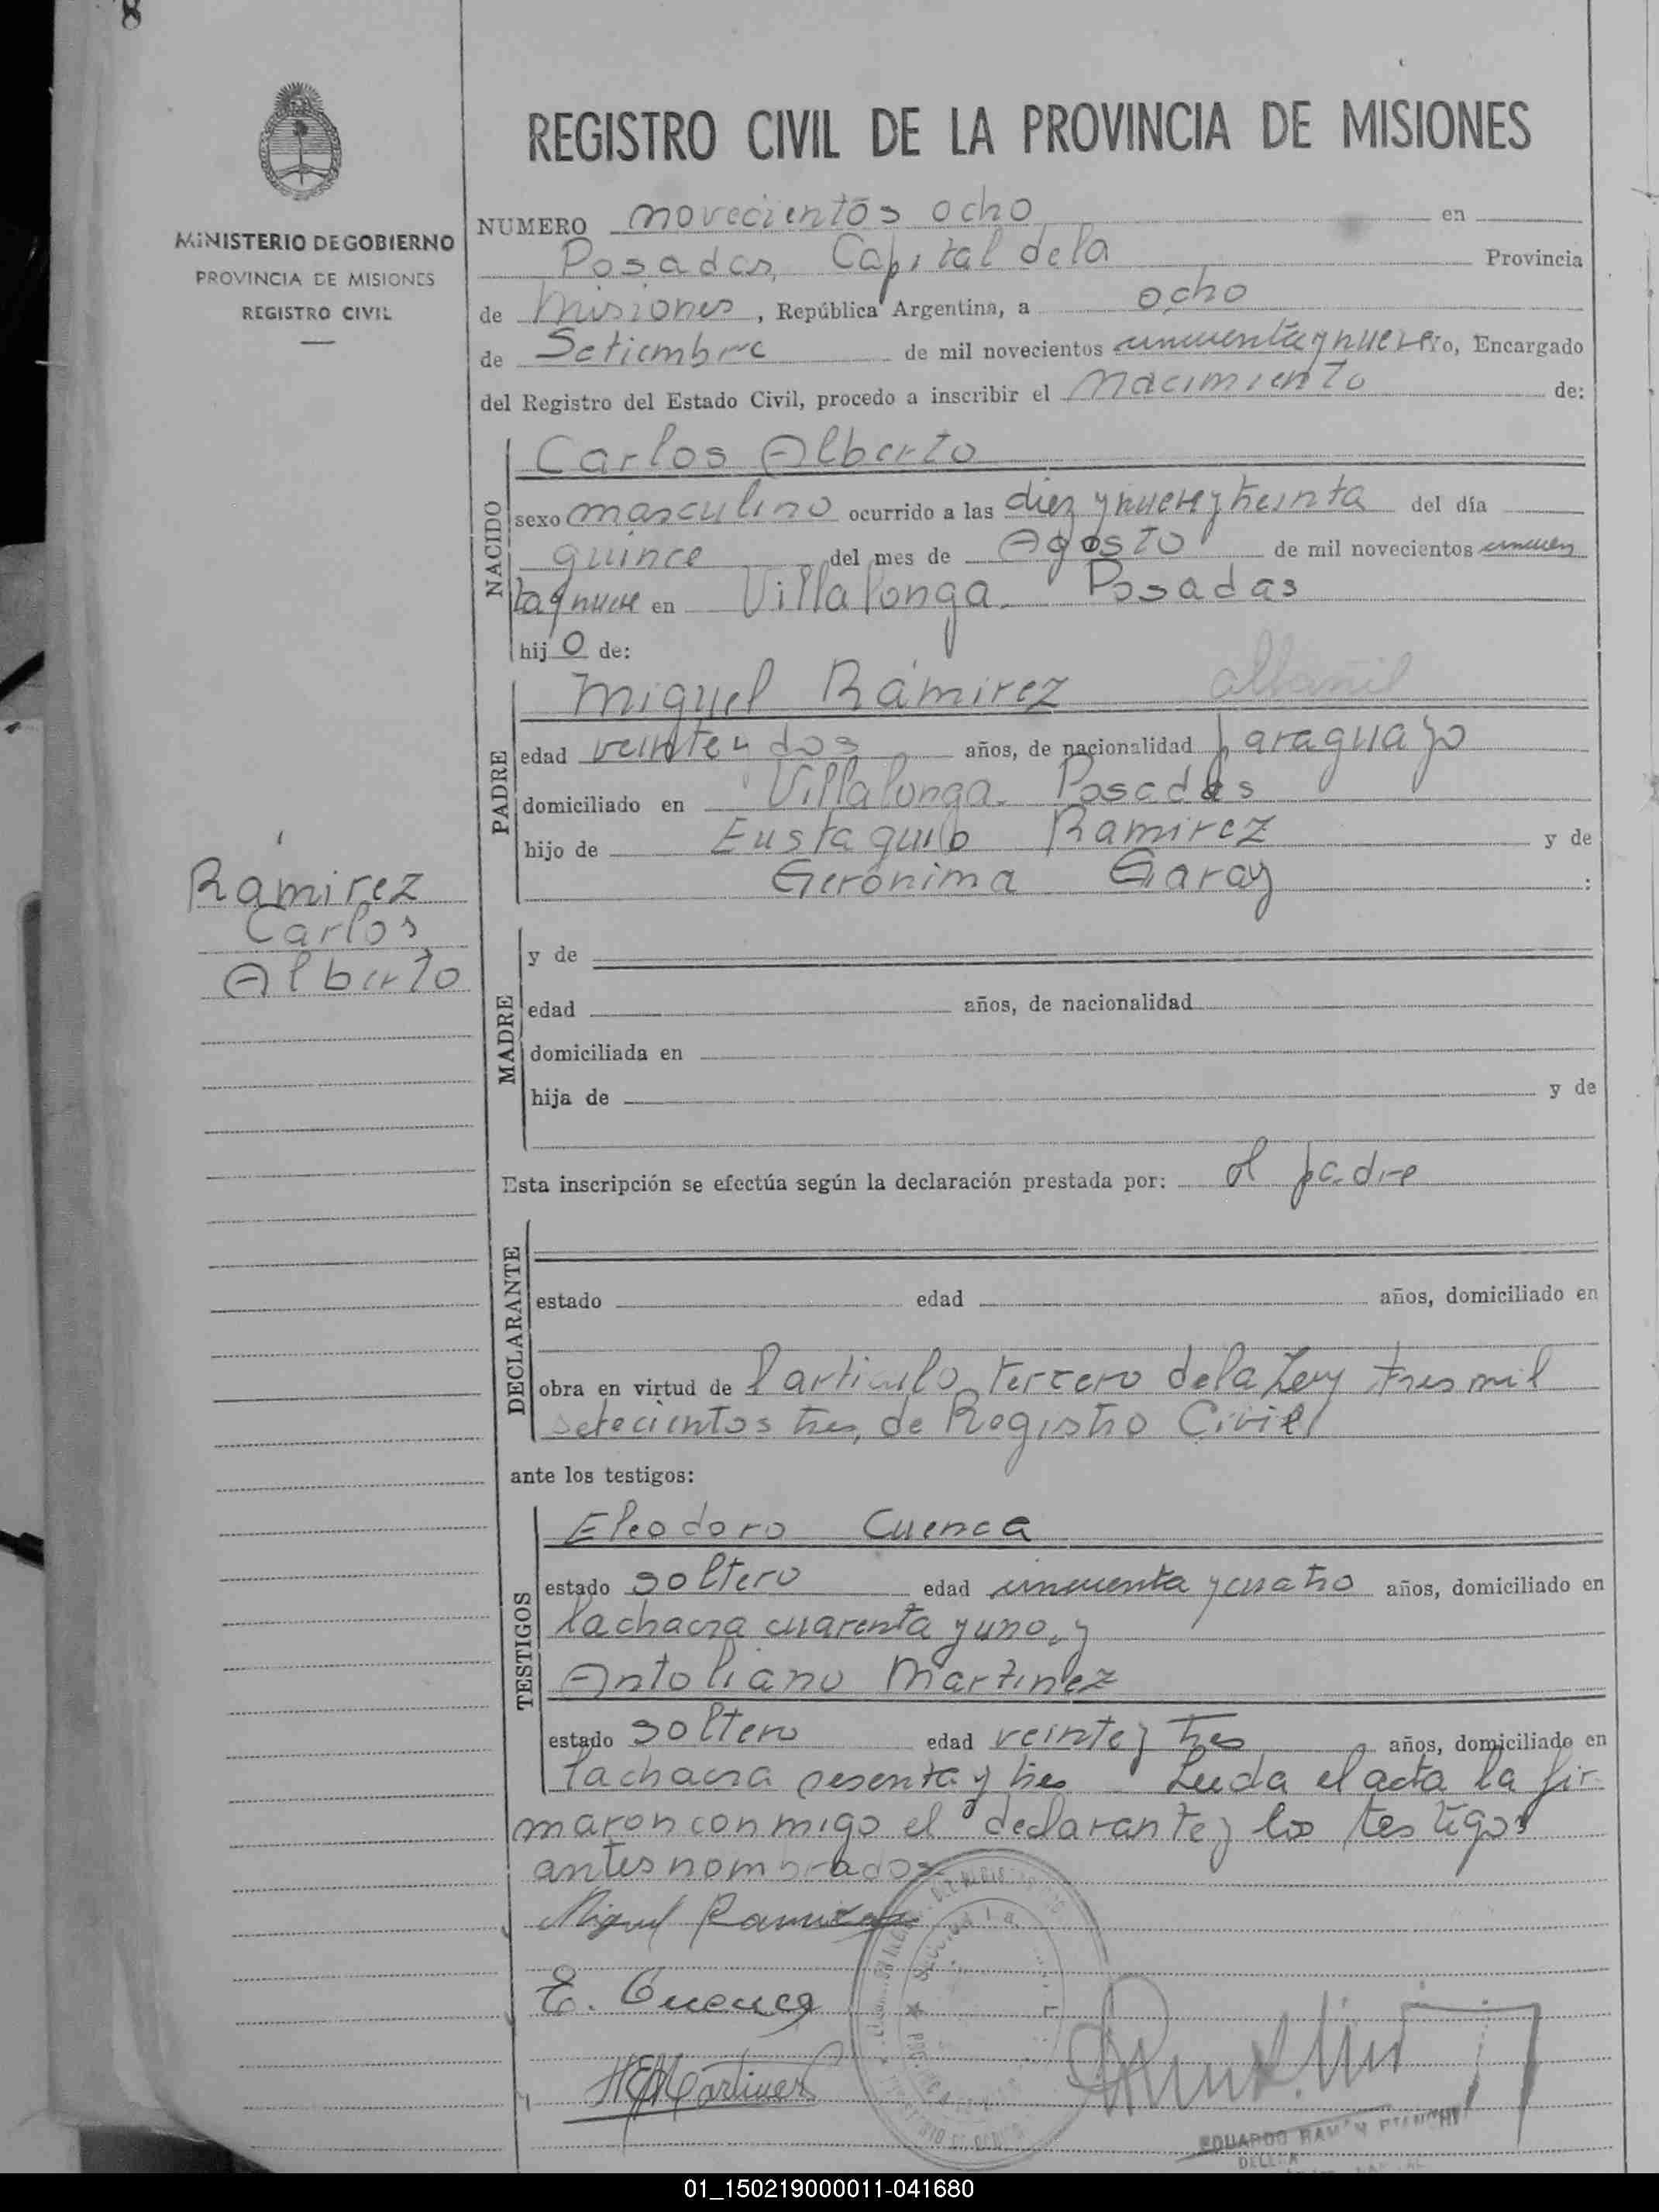 8
MINISTERIO DE GOBIERNO
PROVINCIA DE MISIONES
REGISTRO CIVIL
REGISTRO CIVIL DE LA PROVINCIA DE MISIONES
NUMERO novecientos ocho en
Posadas, Capital de la Provincia
de Misiones, República Argentina, a ocho
de Setiembre de mil novecientos cincuenta y nueve yo, Encargado
del Registro del Estado Civil, procedo a inscribir el nacimiento de:
NACIDO
Carlos Alberto
sexo masculino ocurrido a las diez y nueve y treinta del día
quince del mes de Agosto de mil novecientos cincuen
ta y nueve en Villalonga. Posadas
hijo de:
PADRE
Miguel Ramirez albañil
edad veinte y dos años, de nacionalidad paraguayo
domiciliado en Villalonga. Posadas
hijo de Eustaquio Ramirez y de
Gerónima Garay :
Ramirez
Carlos
Alberto
MADRE
y de
edad años, de nacionalidad
domiciliada en
hija de y de
Esta inscripción se efectúa según la declaración prestada por: el padre
DECLARANTE
estado edad años, domiciliado en
obra en virtud de l articulo tercero de la Ley tres mil
setecientos tres, de Registro Civil
ante los testigos:
TESTIGOS
Eleodoro Cuenca
estado soltero edad cincuenta y cuatro años, domiciliado en
la chacra cuarenta y uno, y
Antoliano Martinez
estado soltero edad veinte y tres años, domiciliado en
la chacra sesenta y tres Leida el acta la fir
maron conmigo el declarante y los testigos
antes nombrados
Miguel Ramirez
E. Cuenca
Martinez
EDUARDO RAMÓN BIANCHI
01_150219000011-041680